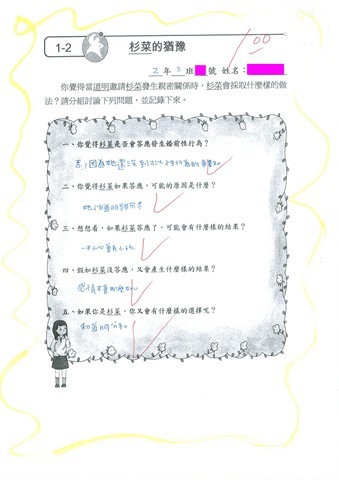 1-2 杉菜的猶豫
100
2 年 3 班 號 姓名：
你覺得當道明邀請杉菜發生親密關係時，杉菜會採取什麼樣的做
法？請分組討論下列問題，並記錄下來。
一、你覺得杉菜是否會答應發生婚前性行為？
否，因為她還沒
二、你覺得杉菜如果答應，可能的原因是什麼？
她怕道明跟分手
三、想想看，如果杉菜答應了，可能會有什麼樣的結果？
一不小心會有小孩
四、假如杉菜沒答應，又會產生什麼樣的結果？
感情不會那麼好
五、如果你是杉菜，你又會有什麼樣的選擇呢？
和道明分手